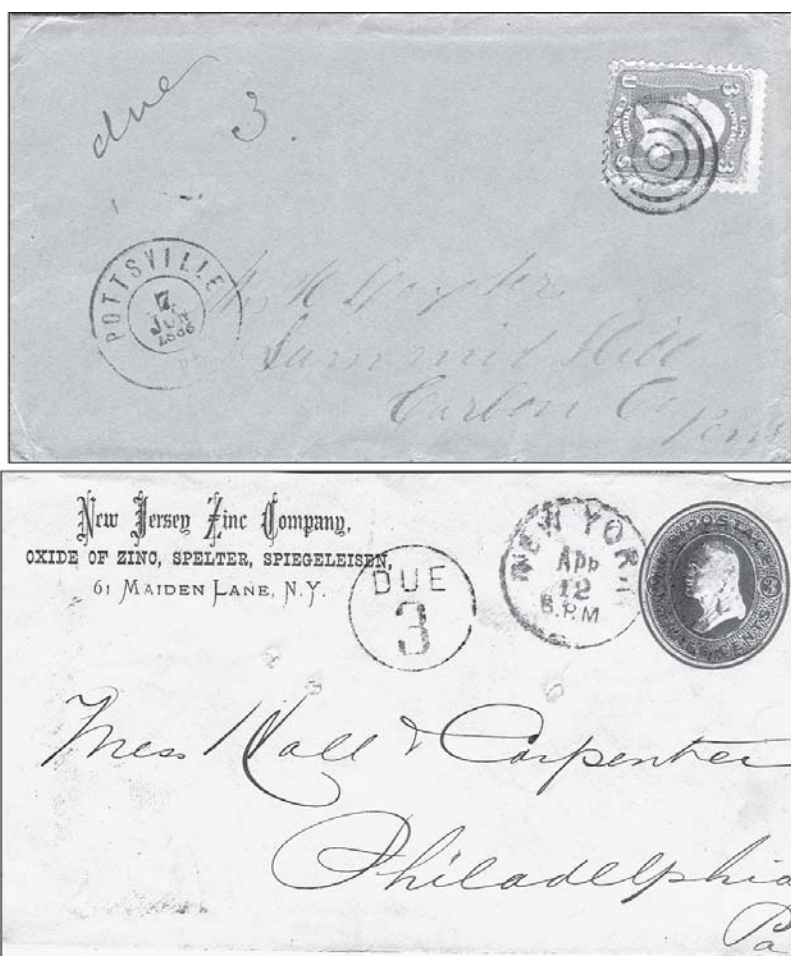 due
3.
U. S. POSTAGE
3 CENTS
POTTSVILLE
7
JUN
1866
Summit Hill
Carbon Co
Penn
New Jersey Zinc Company,
OXIDE OF ZINC, SPELTER, SPIEGELEISEN,
61 MAIDEN LANE, N.Y.
DUE
3
NEW YORK
APR
12
8.P.M
POSTAGE
THREE CENTS
Mess Hall & Carpenter
Philadelphia
Pa